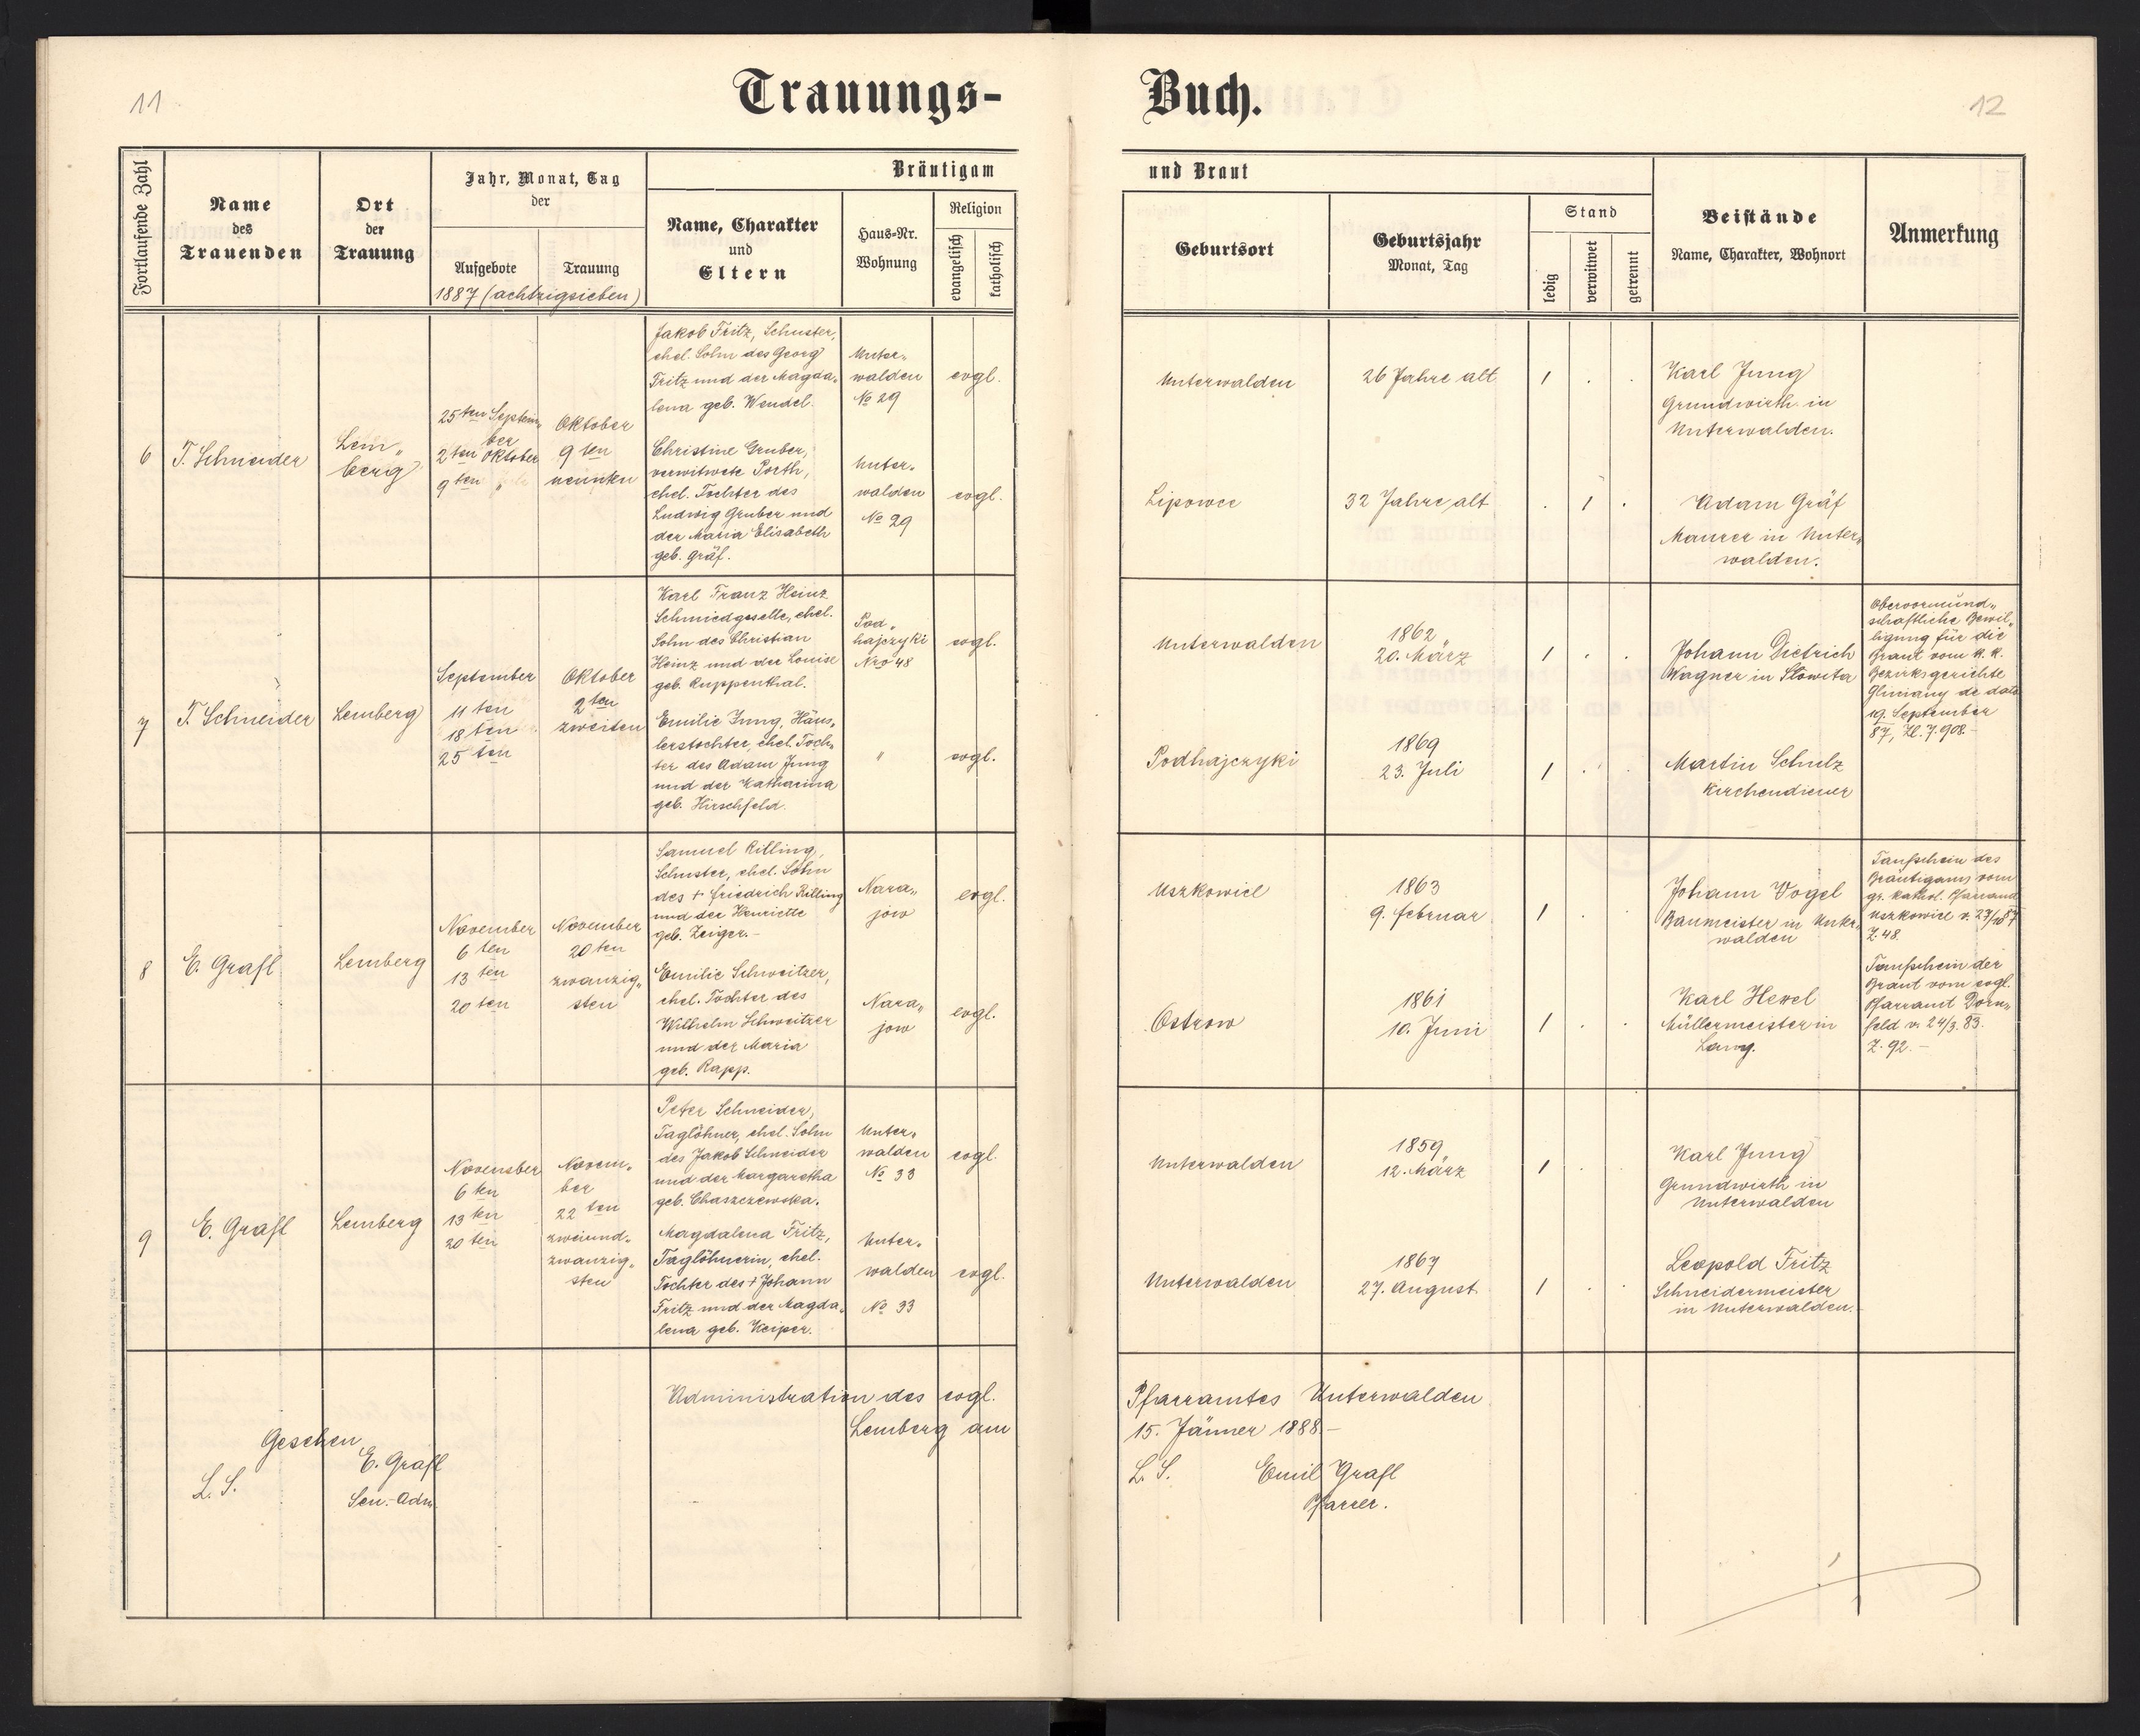 11
Trauungs-
Fortlaufende Zahl
Name
des
Trauenden
Ort
der
Trauung
Jahr, Monat, Tag
der
Aufgebote
Trauung
1887 (achtzigsieben)
Bräutigam
Name, Charakter
und
Eltern
Haus-Nr.
Wohnung
Religion
evangelisch
katholisch
6
T. Schneider
Lem„
berg
25ten Septem„
ber
2ten Oktober
9ten „
Oktober
9ten
neunten
Jakob Fritz, Schuster,
ehel. Sohn des Georg
Fritz und der Magda„
lena geb. Wendel.
Unter„
walden
No 29
evgl.
Christine Gruber,
verwitwete Porth,
ehel. Tochter des
Ludwig Gruber und
der Maria Elisabeth
geb. Gräf.
Unter„
walden
No 29
evgl.
7
T. Schneider
Lemberg
September
11ten
18ten
25ten
Oktober
2ten
zweiten
Karl Franz Heinz
Schmiedgeselle, ehel.
Sohn des Christian
Heinz und der Louise
geb. Ruppenthal.
Pod„
hajczyki
Nro 48
evgl.
Emilie Jung, Häus„
lerstochter, ehel. Toch„
ter des Adam Jung
und der Katharina
geb. Hirschfeld.
"
evgl.
8
E. Grafl
Lemberg
November
6ten
13ten
20ten
November
20ten
zwanzig„
sten
Samuel Rilling,
Schuster, ehel. Sohn
des + Friedrich Rilling
und der Henriette
geb. Zeiger.-
Nara„
jow
evgl.
Emilie Schweitzer,
ehel. Tochter des
Wilhelm Schweitzer
und der Maria
geb. Rapp.
Nara„
jow
evgl.
9
E. Grafl
Lemberg
November
6ten
13ten
20ten
Novem„
ber
22ten
zweiund„
zwanzig„
sten
Peter Schneider,
Taglöhner, ehel. Sohn
des Jakob Schneider
und der Margaretha
geb. Charzewska.
Unter„
walden
No 33
evgl.
Magdalena Fritz,
Taglöhnerin, ehel.
Tochter des + Johann
Fritz und der Magda„
lena geb. Keiper.
Unter„
walden
No 33
evgl.
Administration des evgl.
Lemberg am
Gesehen
E. Grafl
L. S.
Sen.-Adm.
12
Buch.
und Braut
Geburtsort
Geburtsjahr
Monat, Tag
Stand
ledig
verwitwet
getrennt
Beistände
Name, Charakter, Wohnort
Anmerkung
Unterwalden
26 Jahre alt
1 . .
Karl Jung
Grundwirth in
Unterwalden.
Lipowce
32 Jahre alt
. 1 .
Adam Gräf
Maurer in Unter„
walden.
Unterwalden
1862
20. März
1 . .
Johann Dietrich
Wagner in Slowita
Obervormund„
schaftliche Bewil„
ligung für die
Braut vom k. k.
Bezirksgerichte
Gliniany de dato
19. September
87, Zl. 7.908.-
Podhajczyki
1869
23. Juli
1 . .
Martin Schulz
Kirchendiener
Uszkowice
1863
9. Februar
1 . .
Johann Vogel
Baumeister in Unter„
walden
Taufschein des
Bräutigams vom
gr. kathol. Pfarramt
Uszkowice v. 27/10 87
Z. 48.
Ostrow
1861
10. Juni
1 . .
Karl Hexel
Müllermeister in
Lany.
Taufschein der
Braut vom evgl.
Pfarramt Dorn„
feld v. 24/3. 83.
Z. 92.-
Unterwalden
1859
12. März
1 .
Karl Jung
Grundwirth in
Unterwalden
Unterwalden
1867
27. August
1 . .
Leopold Fritz
Schneidermeister
in Unterwalden.-
Pfarramtes Unterwalden
15. Jänner 1888.-
L. S. Emil Grafl
Pfarrer.